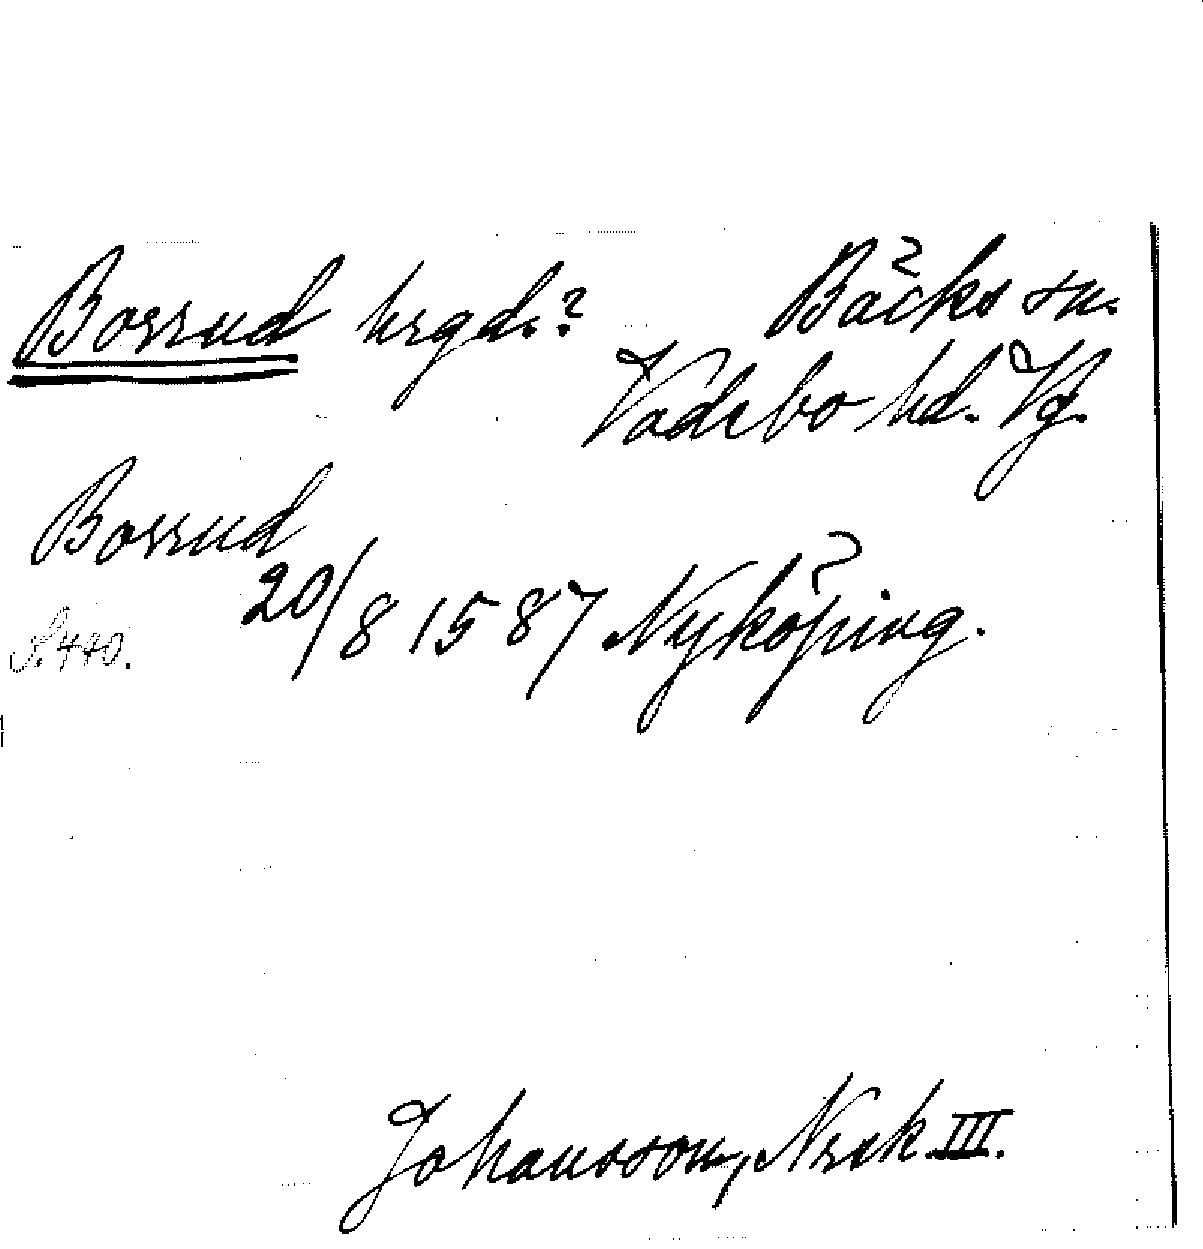 Borrud hrgd.? Bäcks sn.
Vadsbo hd. Vg.
Borrud
20/8 1587 Nyköping.
S. 440.
Johansson, Nrek III.